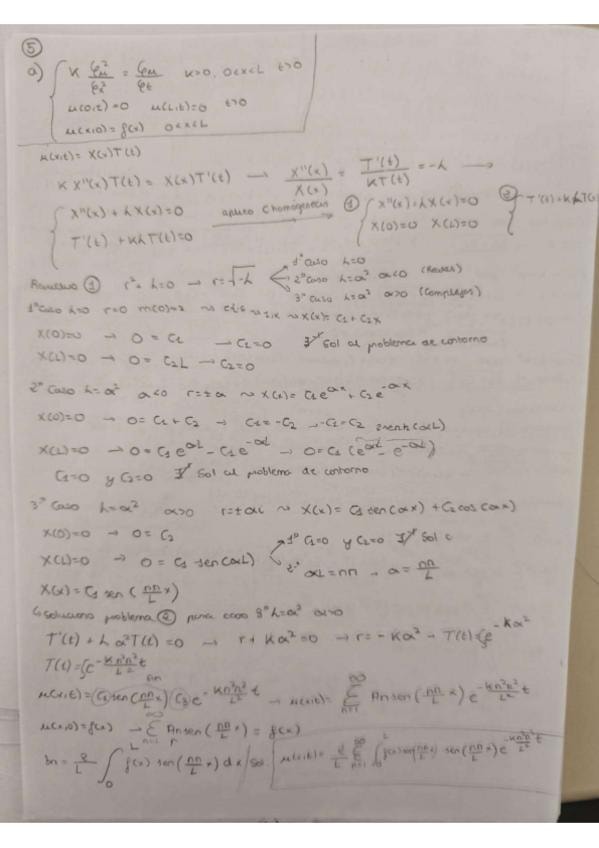 5
a) { K φ²μ/φx² = φμ/φt K>0, 0<x<L t>0
μ(0,t)=0 μ(L,t)=0 t>0
μ(x,0)=f(x) 0<x<L
μ(x,t)= X(x)T(t)
K X''(x)T(t) = X(x)T'(t) → X''(x)/X(x) = T'(t)/KT(t) = -λ →
{ X''(x) + λX(x)=0
T'(t) + KλT(t)=0
1 { X''(x)+λX(x)=0
X(0)=0 X(L)=0
2 { T'(t)+KλT(t)
Resuelvo 1 r²+λ=0 → r=√-λ
1º Caso λ=0
2º Caso λ=α² α<0 (Reales)
3º Caso λ=α² α>0 (Complejos)
1º Caso λ=0 r=0 m(0)=2 X(x)= C1+C2x
X(0)=0 → 0 = C1 → C2=0 ∄ Sol al problema de contorno
X(L)=0 → 0 = C2L → C2=0
2º Caso λ=α² α<0 r=±α X(x)= C1e^αx + C2e^-αx
X(0)=0 → 0= C1+C2 → C1=-C2 → -C1=C2 2senh(αL)
X(L)=0 → 0= C1e^αL - C1e^-αL → 0=C1(e^αL - e^-αL)
C1=0 y C2=0 ∄ Sol al problema de contorno
3º Caso λ=α² α>0 r=±αi X(x)= C1 sen(αx) + C2 cos(αx)
X(0)=0 → 0 = C2
X(L)=0 → 0 = C1 sen(αL)
1º C1=0 y C2=0 ∄ Sol
2º αL=nπ → α= nπ/L
X(x)= C1 sen(nπ/L x)
Soluciono problema 2 para caso 3º λ=α² α>0
T'(t) + λα²T(t)=0 → r+Kα²=0 → r=-Kα² → T(t)=C3e^-Kα²
T(t)=C3e^(-Kn²π²/L² t)
μ(x,t)= C1 sen(nπ/L x) C3 e^(-Kn²π²/L² t) → μ(x,t)= Σ n=1 ∞ An sen(nπ/L x) e^(-Kn²π²/L² t)
μ(x,0)=f(x) → Σ n=1 ∞ An sen(nπ/L x) = f(x)
bn= 2/L ∫0 L f(x) sen(nπ/L x) dx Sol: μ(x,t)= 2/L Σ n=1 ∞ ∫0 L f(x) sen(nπ/L x) sen(nπ/L x) e^(-Kn²π²/L² t)